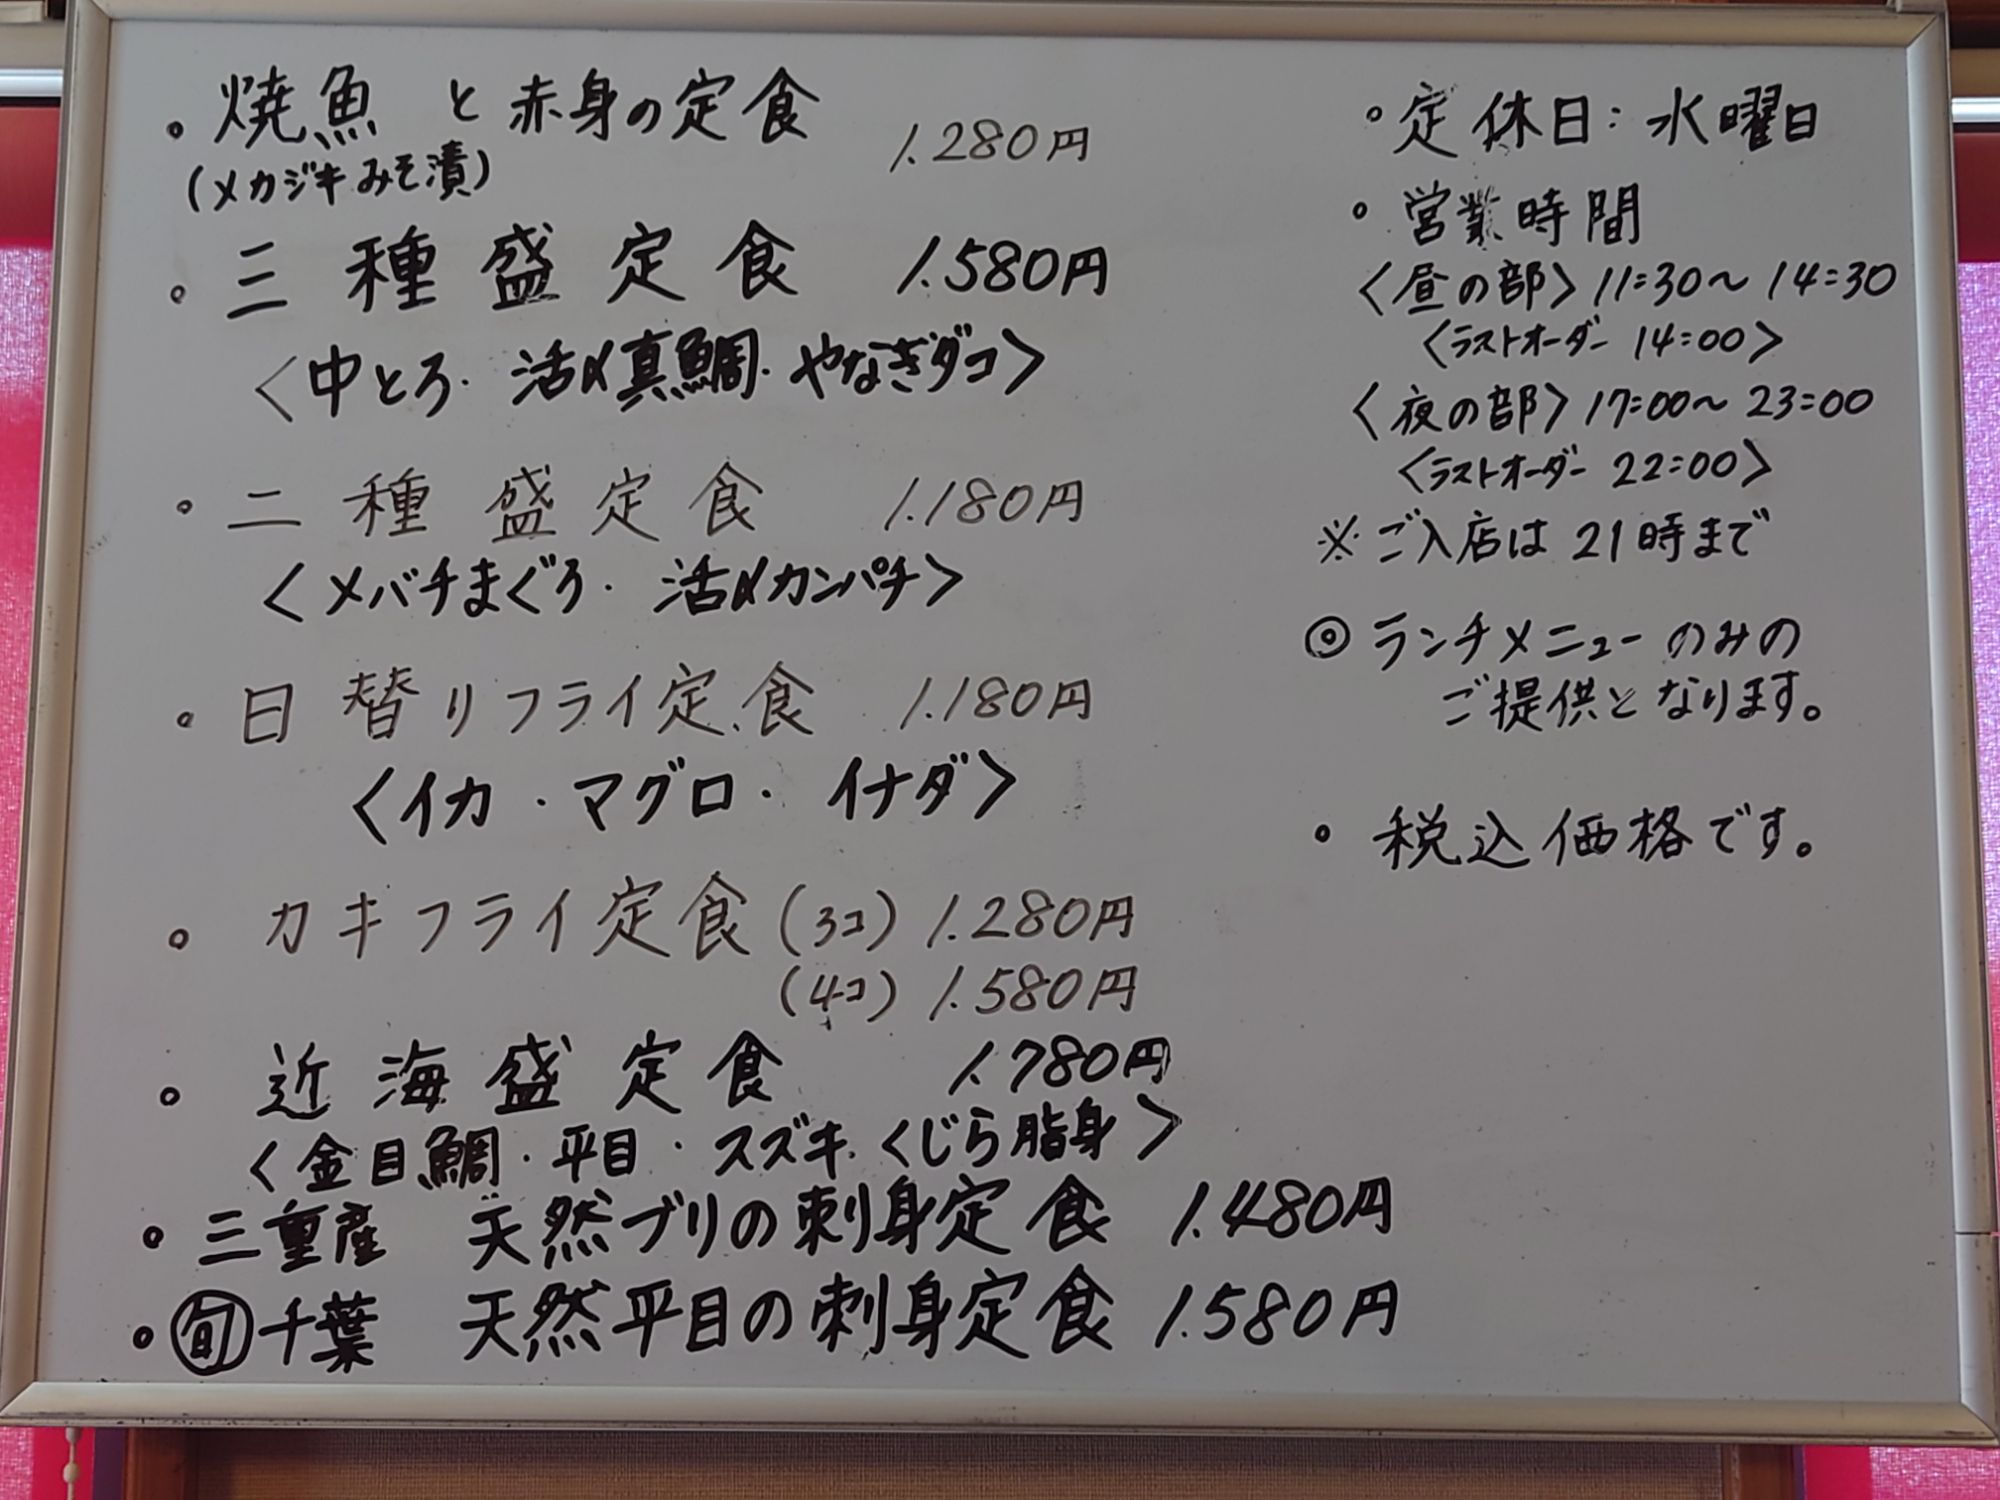 。焼魚 と 赤身の定食 1.280円
(メカジキみそ漬)
。三種盛定食 1.580円
〈中とろ・活〆真鯛・やなぎダコ〉
。二種盛定食 1.180円
〈メバチまぐろ・活〆カンパチ〉
。日替りフライ定食 1.180円
〈イカ・マグロ・イナダ〉
。カキフライ定食(3コ) 1.280円
(4コ) 1.580円
。近海盛定食 1.780円
〈金目鯛・平目・スズキ・くじら脂身〉
。三重産 天然ブリの刺身定食 1.480円
。㊬千葉 天然平目の刺身定食 1.580円
。定休日:水曜日
。営業時間
〈昼の部〉11:30〜14:30
〈ラストオーダー 14:00〉
〈夜の部〉17:00〜23:00
〈ラストオーダー 22:00〉
※ご入店は21時まで
◎ランチメニューのみの
ご提供となります。
。税込価格です。